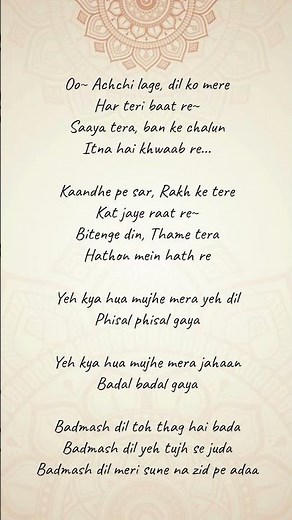 Oo~ Achchi lage, dil ko mere
Har teri baat re~
Saaya tera, ban ke chalun
Itna hai khwaab re...
Kaandhe pe sar, Rakh ke tere
Kat jaye raat re~
Bitenge din, Thame tera
Hathon mein hath re
Yeh kya hua mujhe mera yeh dil
Phisal phisal gaya
Yeh kya hua mujhe mera jahaan
Badal badal gaya
Badmash dil toh thag hai bada
Badmash dil yeh tujh se juda
Badmash dil meri sune na zid pe adaa